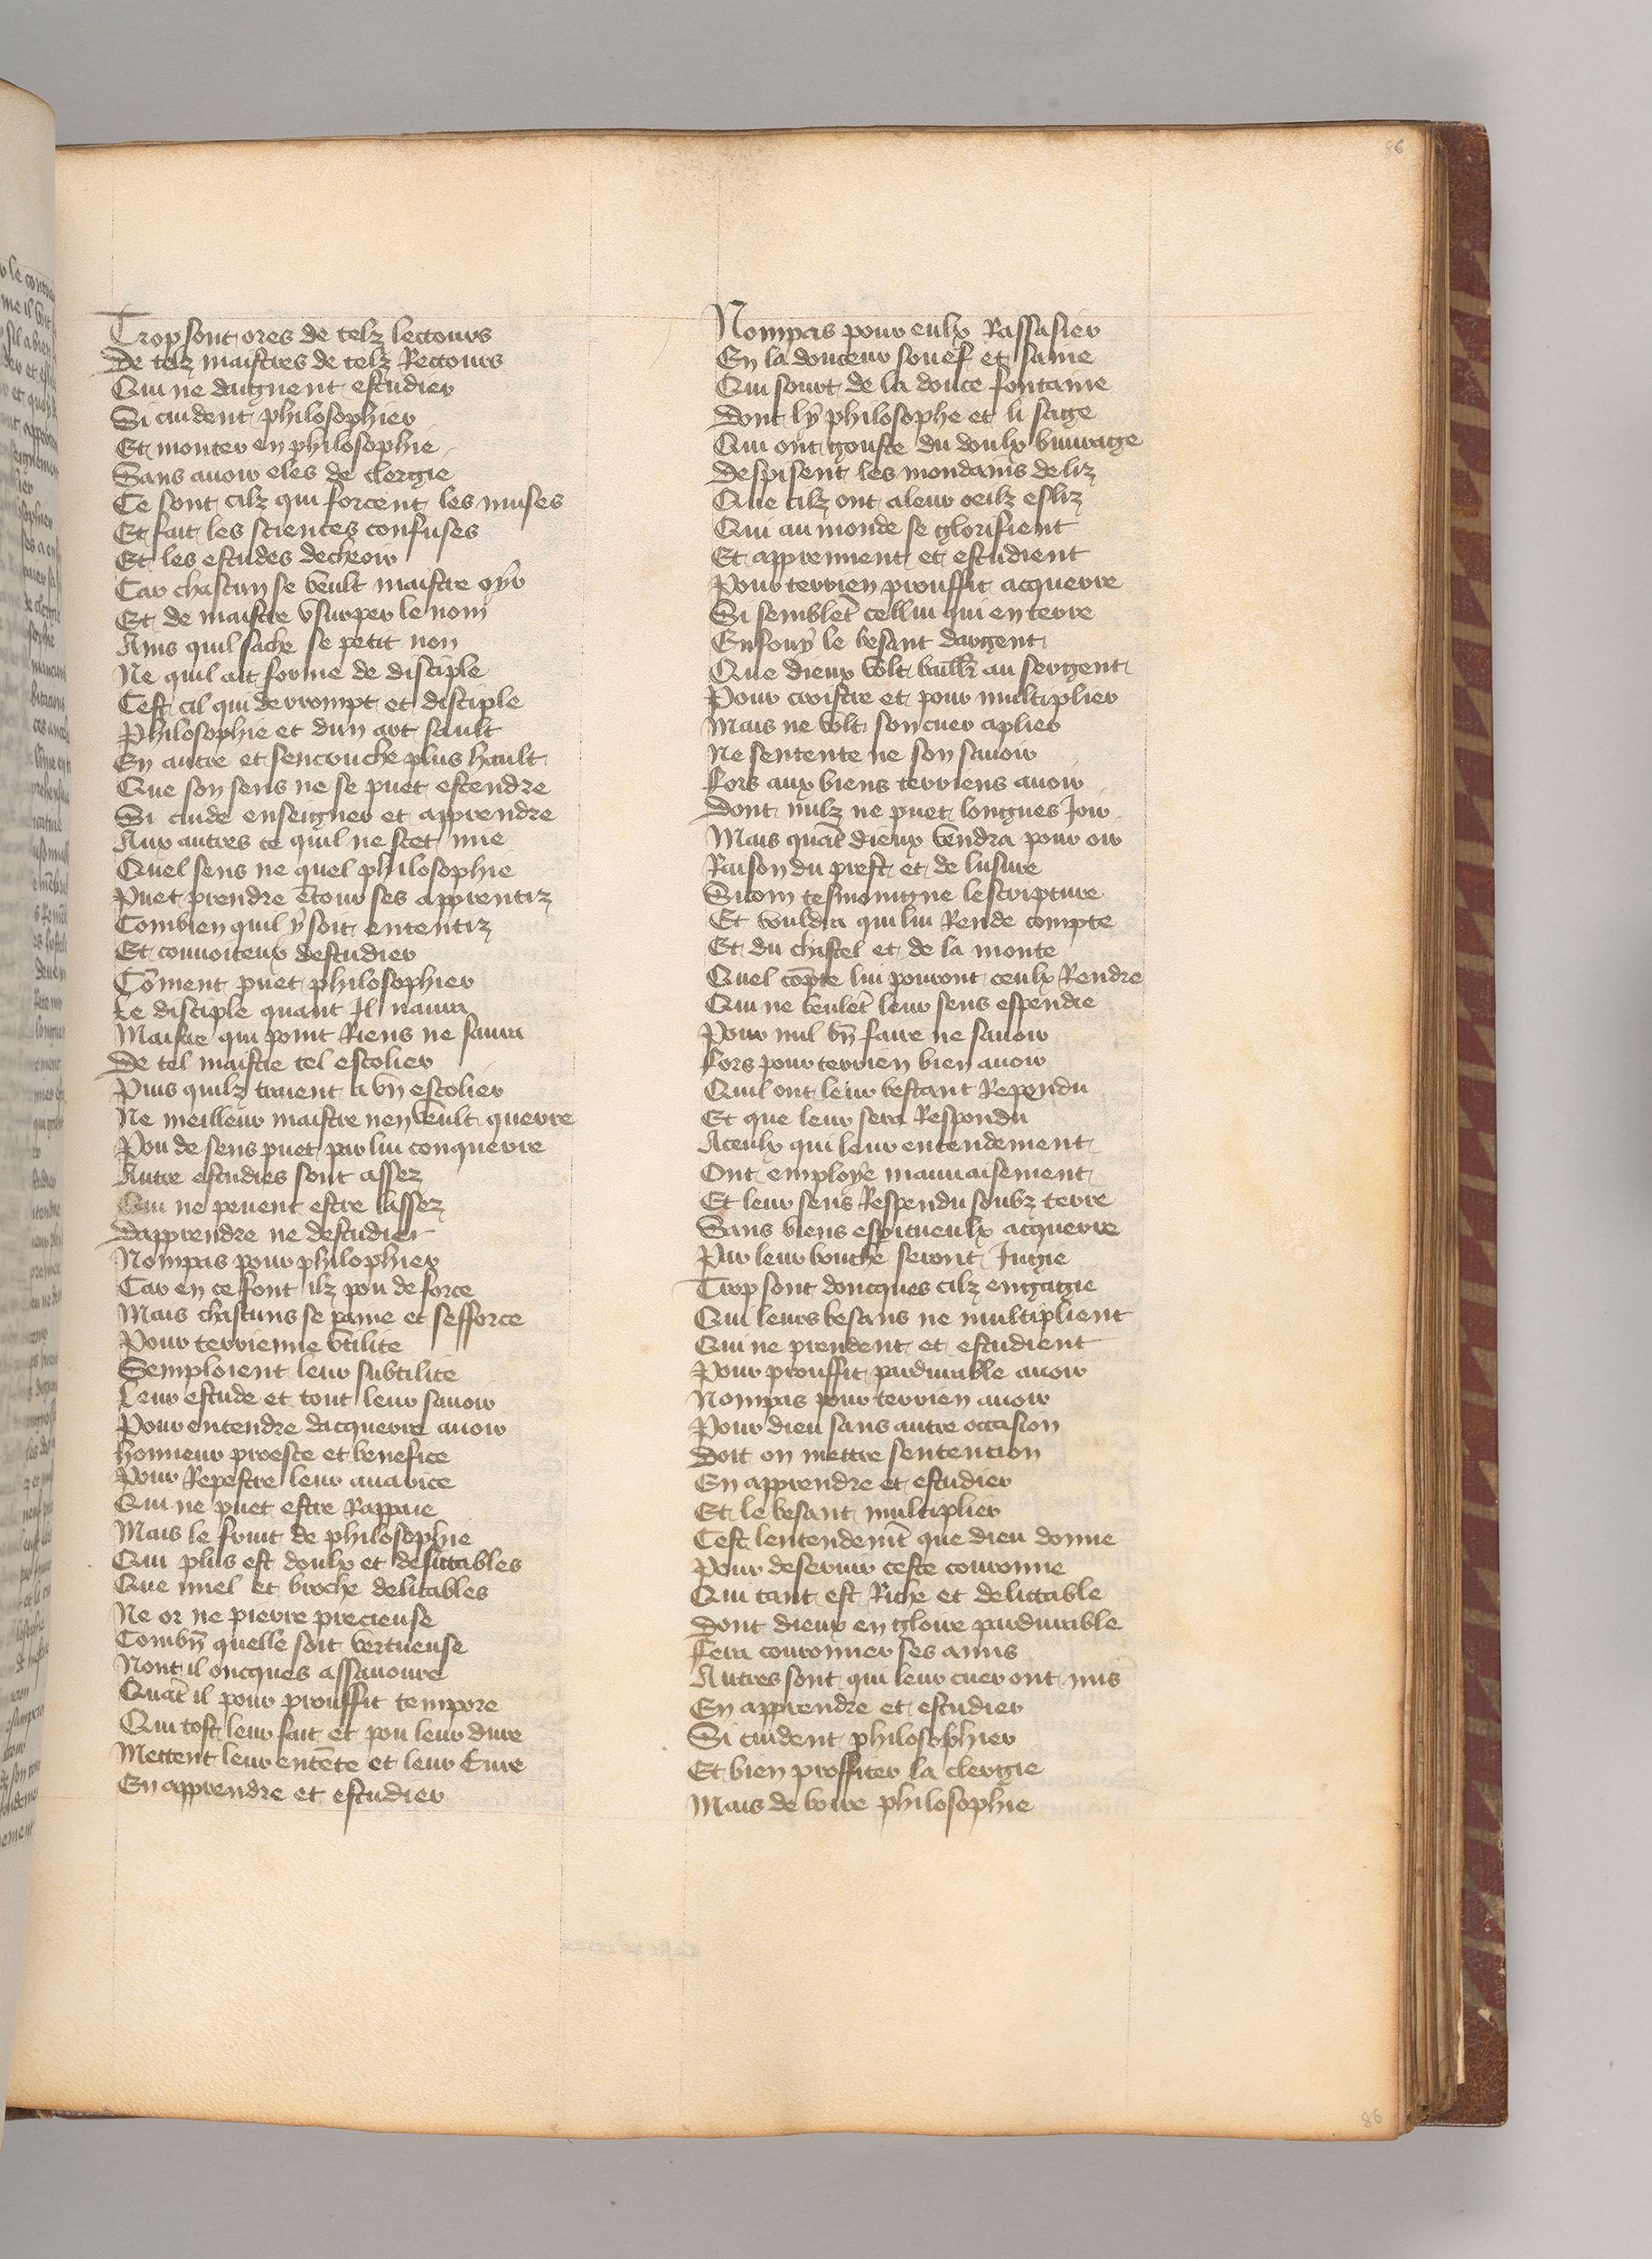 86
Trop sont ores de telz lectours
De telz maistres de telz Rectours
Qui ne daignent estudier
Si cuident philosophier
Et monter en philosophie
Sans auoir eles de clergie
Ce sont cilz qui forcent les muses
Et fait les sciences confuses
Et les estudes decheoir
Car chascun se veult maistre oÿr
Et de maistre vsurper le nom
Ains quil sache se petit non
Ne quil ait forme de disciple
Cest cil qui derrompt et disciple
Philosophie et dun art sault
En autre et sencrouche plus hault
Que son sens ne se puet estendre
Si cuide enseigner et apprendre
Aux autres ce quil ne scet mie
Quel sens ne quel philosophie
Puet prendre ētour ses apprentiz
Combien quil ÿ soit ententiz
Et conuoiteux destudier
Cōment puet philosophier
Le disciple quant Il naura
Maistre qui point Riens ne saura
De tel maistre tel escolier
Puis quilz traient a vn escolier
Ne meilleur maistre nen veult querre
Pou de sens puet par lui conquerre
Autre estudies sont assez
Qui ne peuent estre lassez
Dapprendre ne destudier
Nompas pour philophier
Car en ce font ilz pou de force
Mais chascuns se paine et sefforce
Pour terrienne vtilite
Semploient leur subtilite
Leur estude et tout leur sauoir
Pour entendre dacquerre auoir
Honneur proesce et benefice
Pour Repestre leur auarice
Qui ne puet estre Rappaie
Mais le fruit de philosophie
Qui plus est doulx et delittables
Que miel et broche delitables
Ne or ne pierre precieuse
Combn̄ quelle soit vertueuse
Nont il oncques assauoure
Quāt il pour prouffit tempore
Qui tost leur fait et pou leur dure
Mettent leur entēte et leur Cure
En apprendre et estudier
Nompas pour eulx Rassasier
En la douceur souef et saine
Qui sourt de la douce fontaine
Dont lÿ philosophe et li sage
Qui ont gouste du doulx buurage
Despisent les mondains deliz
Que cilz ont a leur oeilz esliz
Qui au monde se glorifient
Et apprennent et estudient
Pour terrien prouffit acquerre
Si semblēt cellui qui en terre
Enfouÿ le besant dargent
Que dieux volt baillr̄ au sergent
Pour croistre et pour multiplier
Mais ne volt son cuer aplier
Ne sentente ne son sauoir
Fors aux biens terriens auoir
Dont nulz ne puet longues Joir
Mais quāt dieux vendra pour oir
Raison du prest et de lusure
Sicom tesmoingne lescripture
Et vouldra qui lui Rende compte
Et du chastel et de la monte
Quel cōpte lui pouront ceulx Rendre
Qui ne veulēt leur sens espendre
Pour nul bn̄ faire ne sauoir
Fors pour terrien bien auoir
Quil ont leur bestant Rependu
Et que leur sera Respondu
Aceulx qui leur entendement
Ont employe mauuaisement
Et leur sens Respendu soubz terre
Sans biens espirtueulx acquerre
Par leur bouche seront Jugie
Trop sont doncques cilz engagie
Qui leurs besans ne multiplient
Qui ne prendent et estudient
Pour prouffit pardurable auoir
Nompas pour terrien auoir
Pour dieu sans autre occasion
Doit on mettre sentencion
En apprendre et estudier
Et le besant multiplier
Cest lentendemt̄ que dieu donne
Pour deseruir ceste couronne
Qui tant est Riche et delittable
Dont dieux en gloire pardurable
Fera couronner ses amis
Autres sont qui leur cuer ont mis
En apprendre et estudier
Si cuident philosophier
Et bien proffiter la clergie
Mais de voire philosophie
86